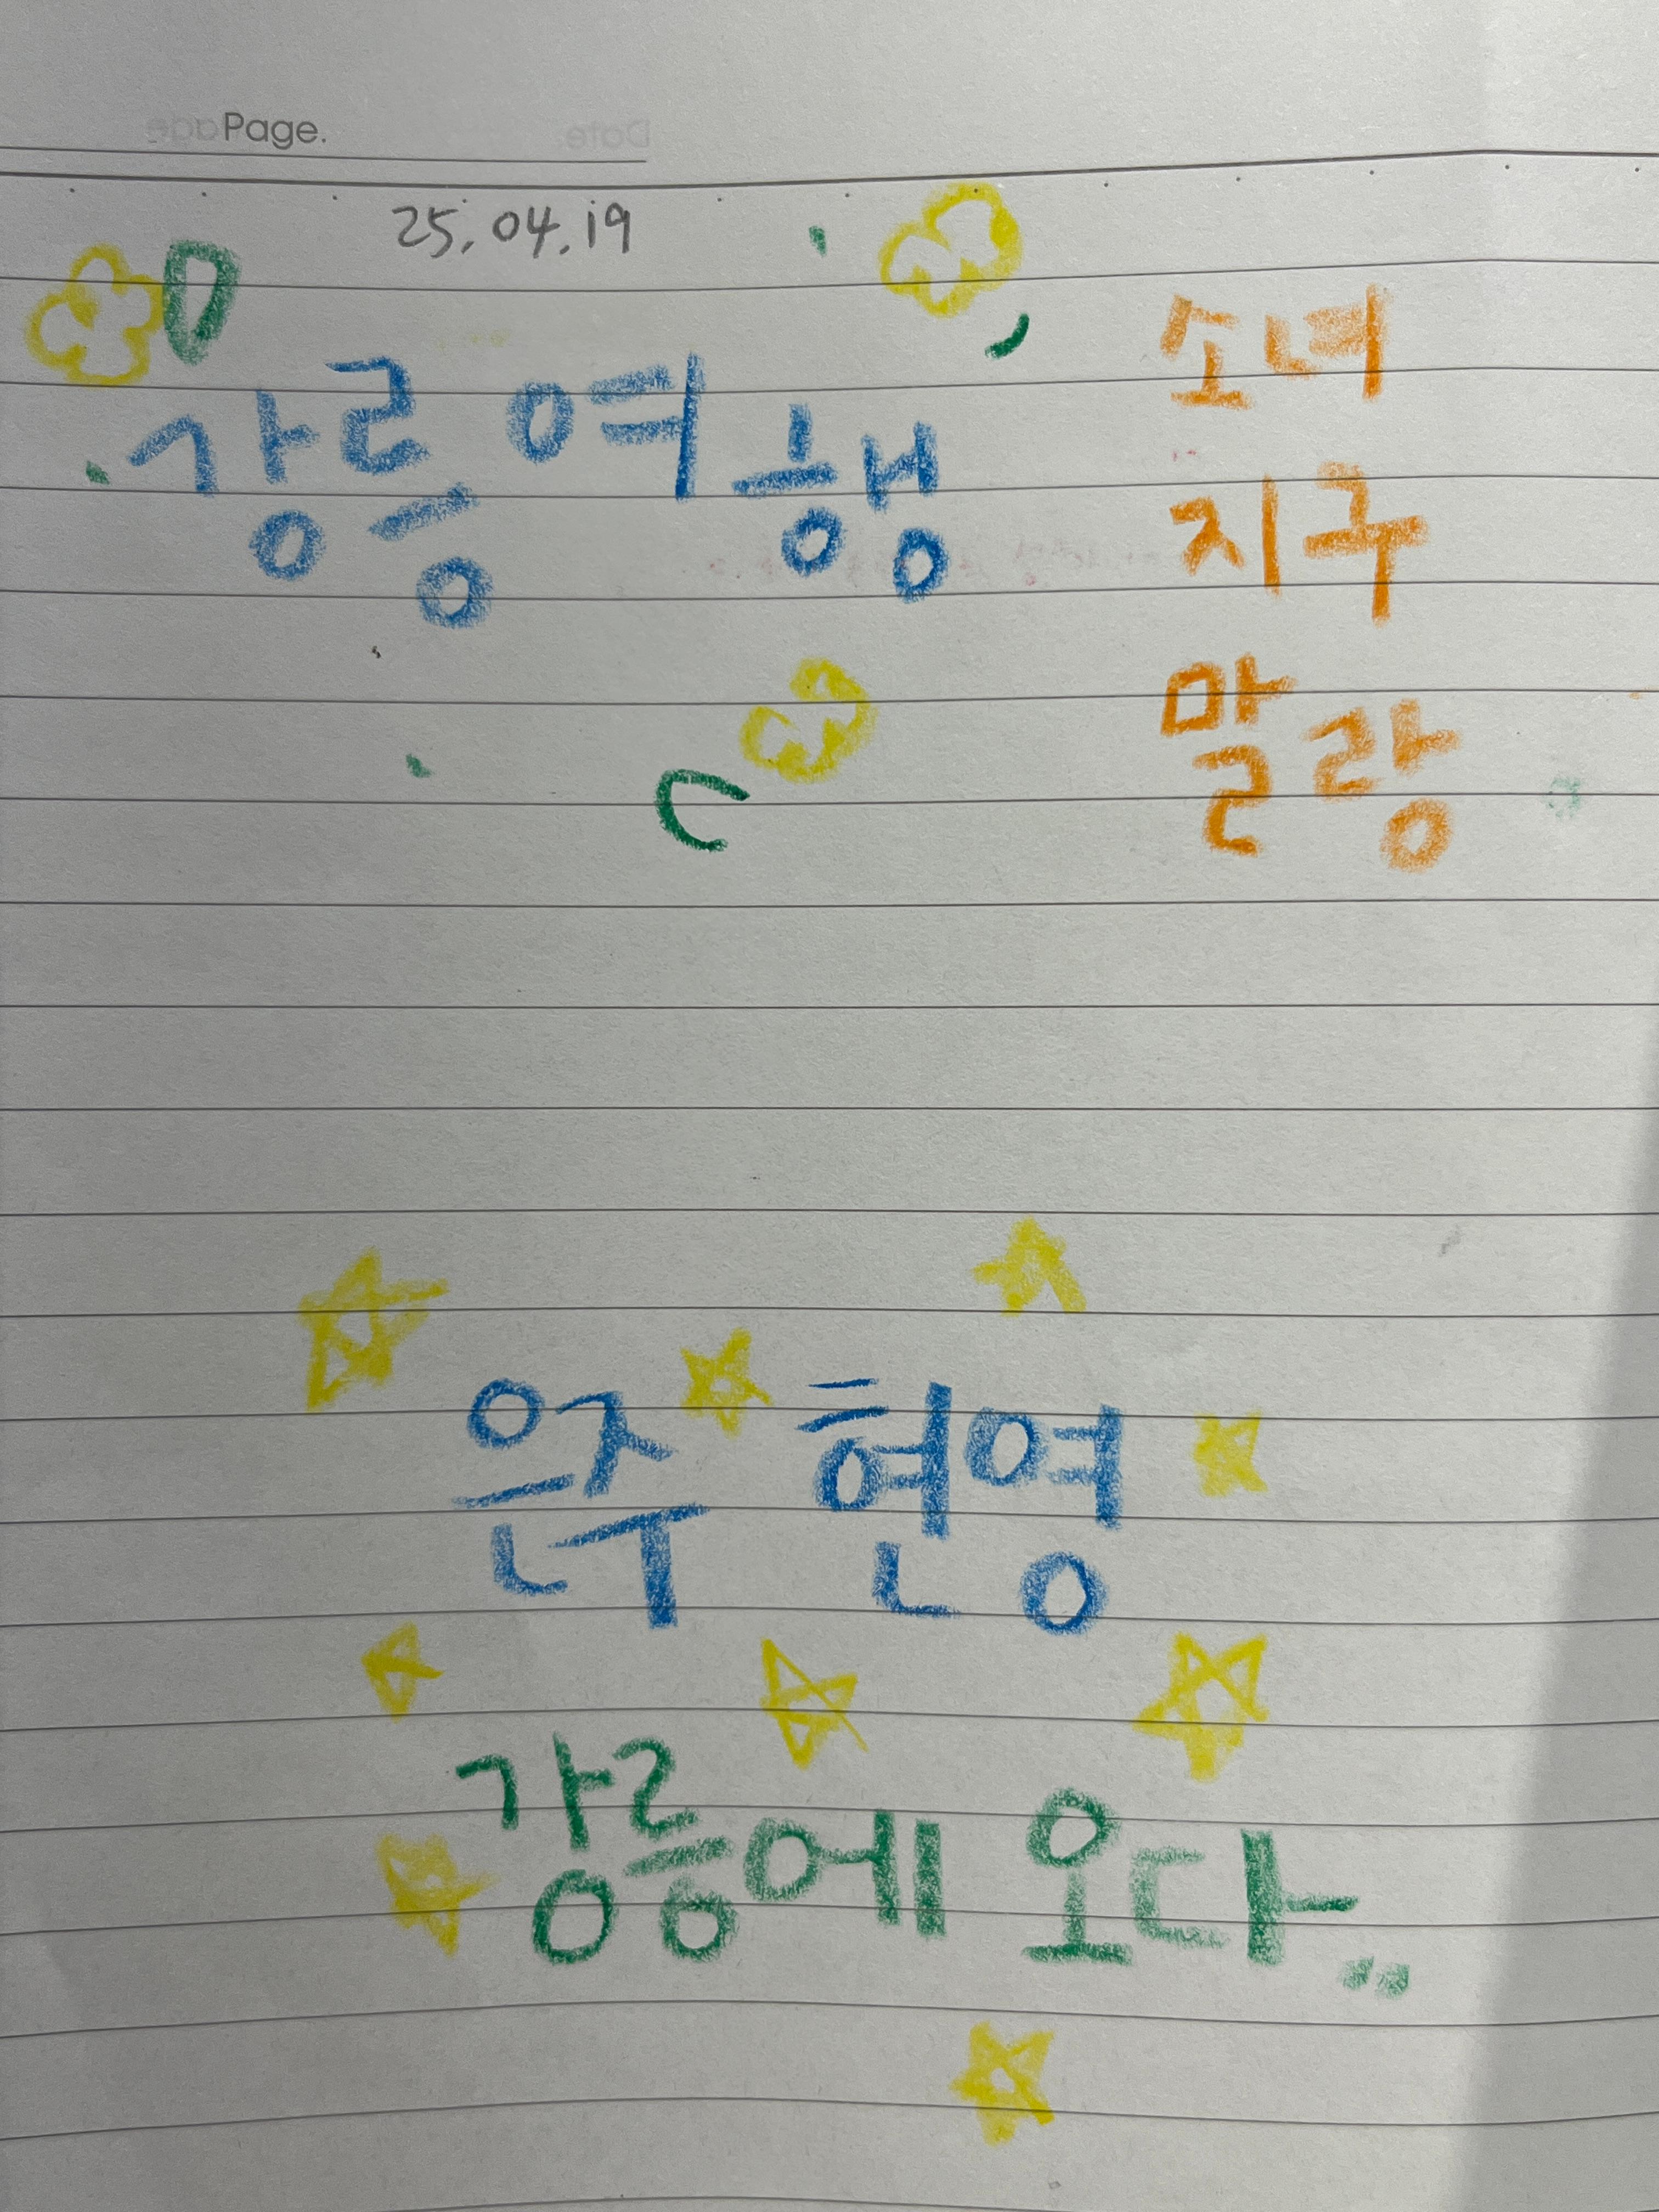 Page.
25. 04. 19
강릉 여행
소녀
지구
말랑
은주 현영
강릉에 오다..